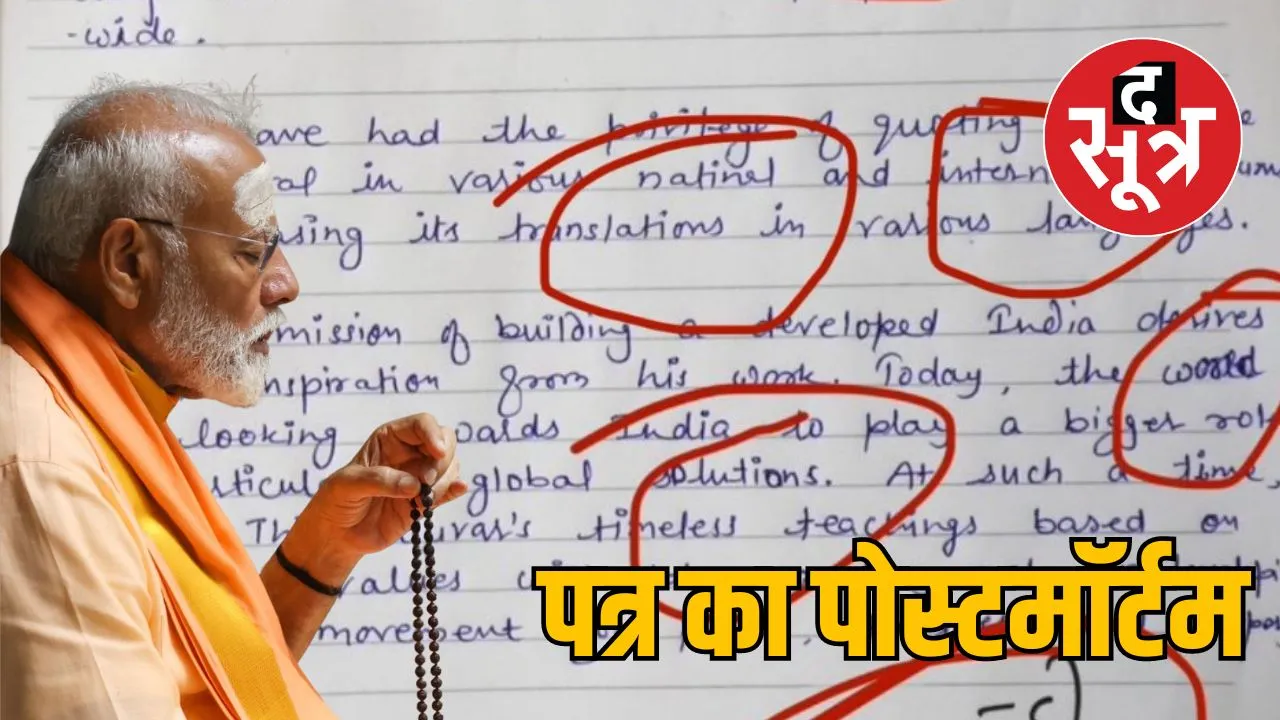 -wide.
ave had the privilege of quoting
in various natinal and intern
its translations in various
द
सूत्र
mission of building a developed India desires
nspiration from his work. Today, the world
looking wards India to play a bigger rol
global solutions. At such a time,
Th uvar's timeless teachings based on
values
movement
पत्र का पोस्टमॉर्टम